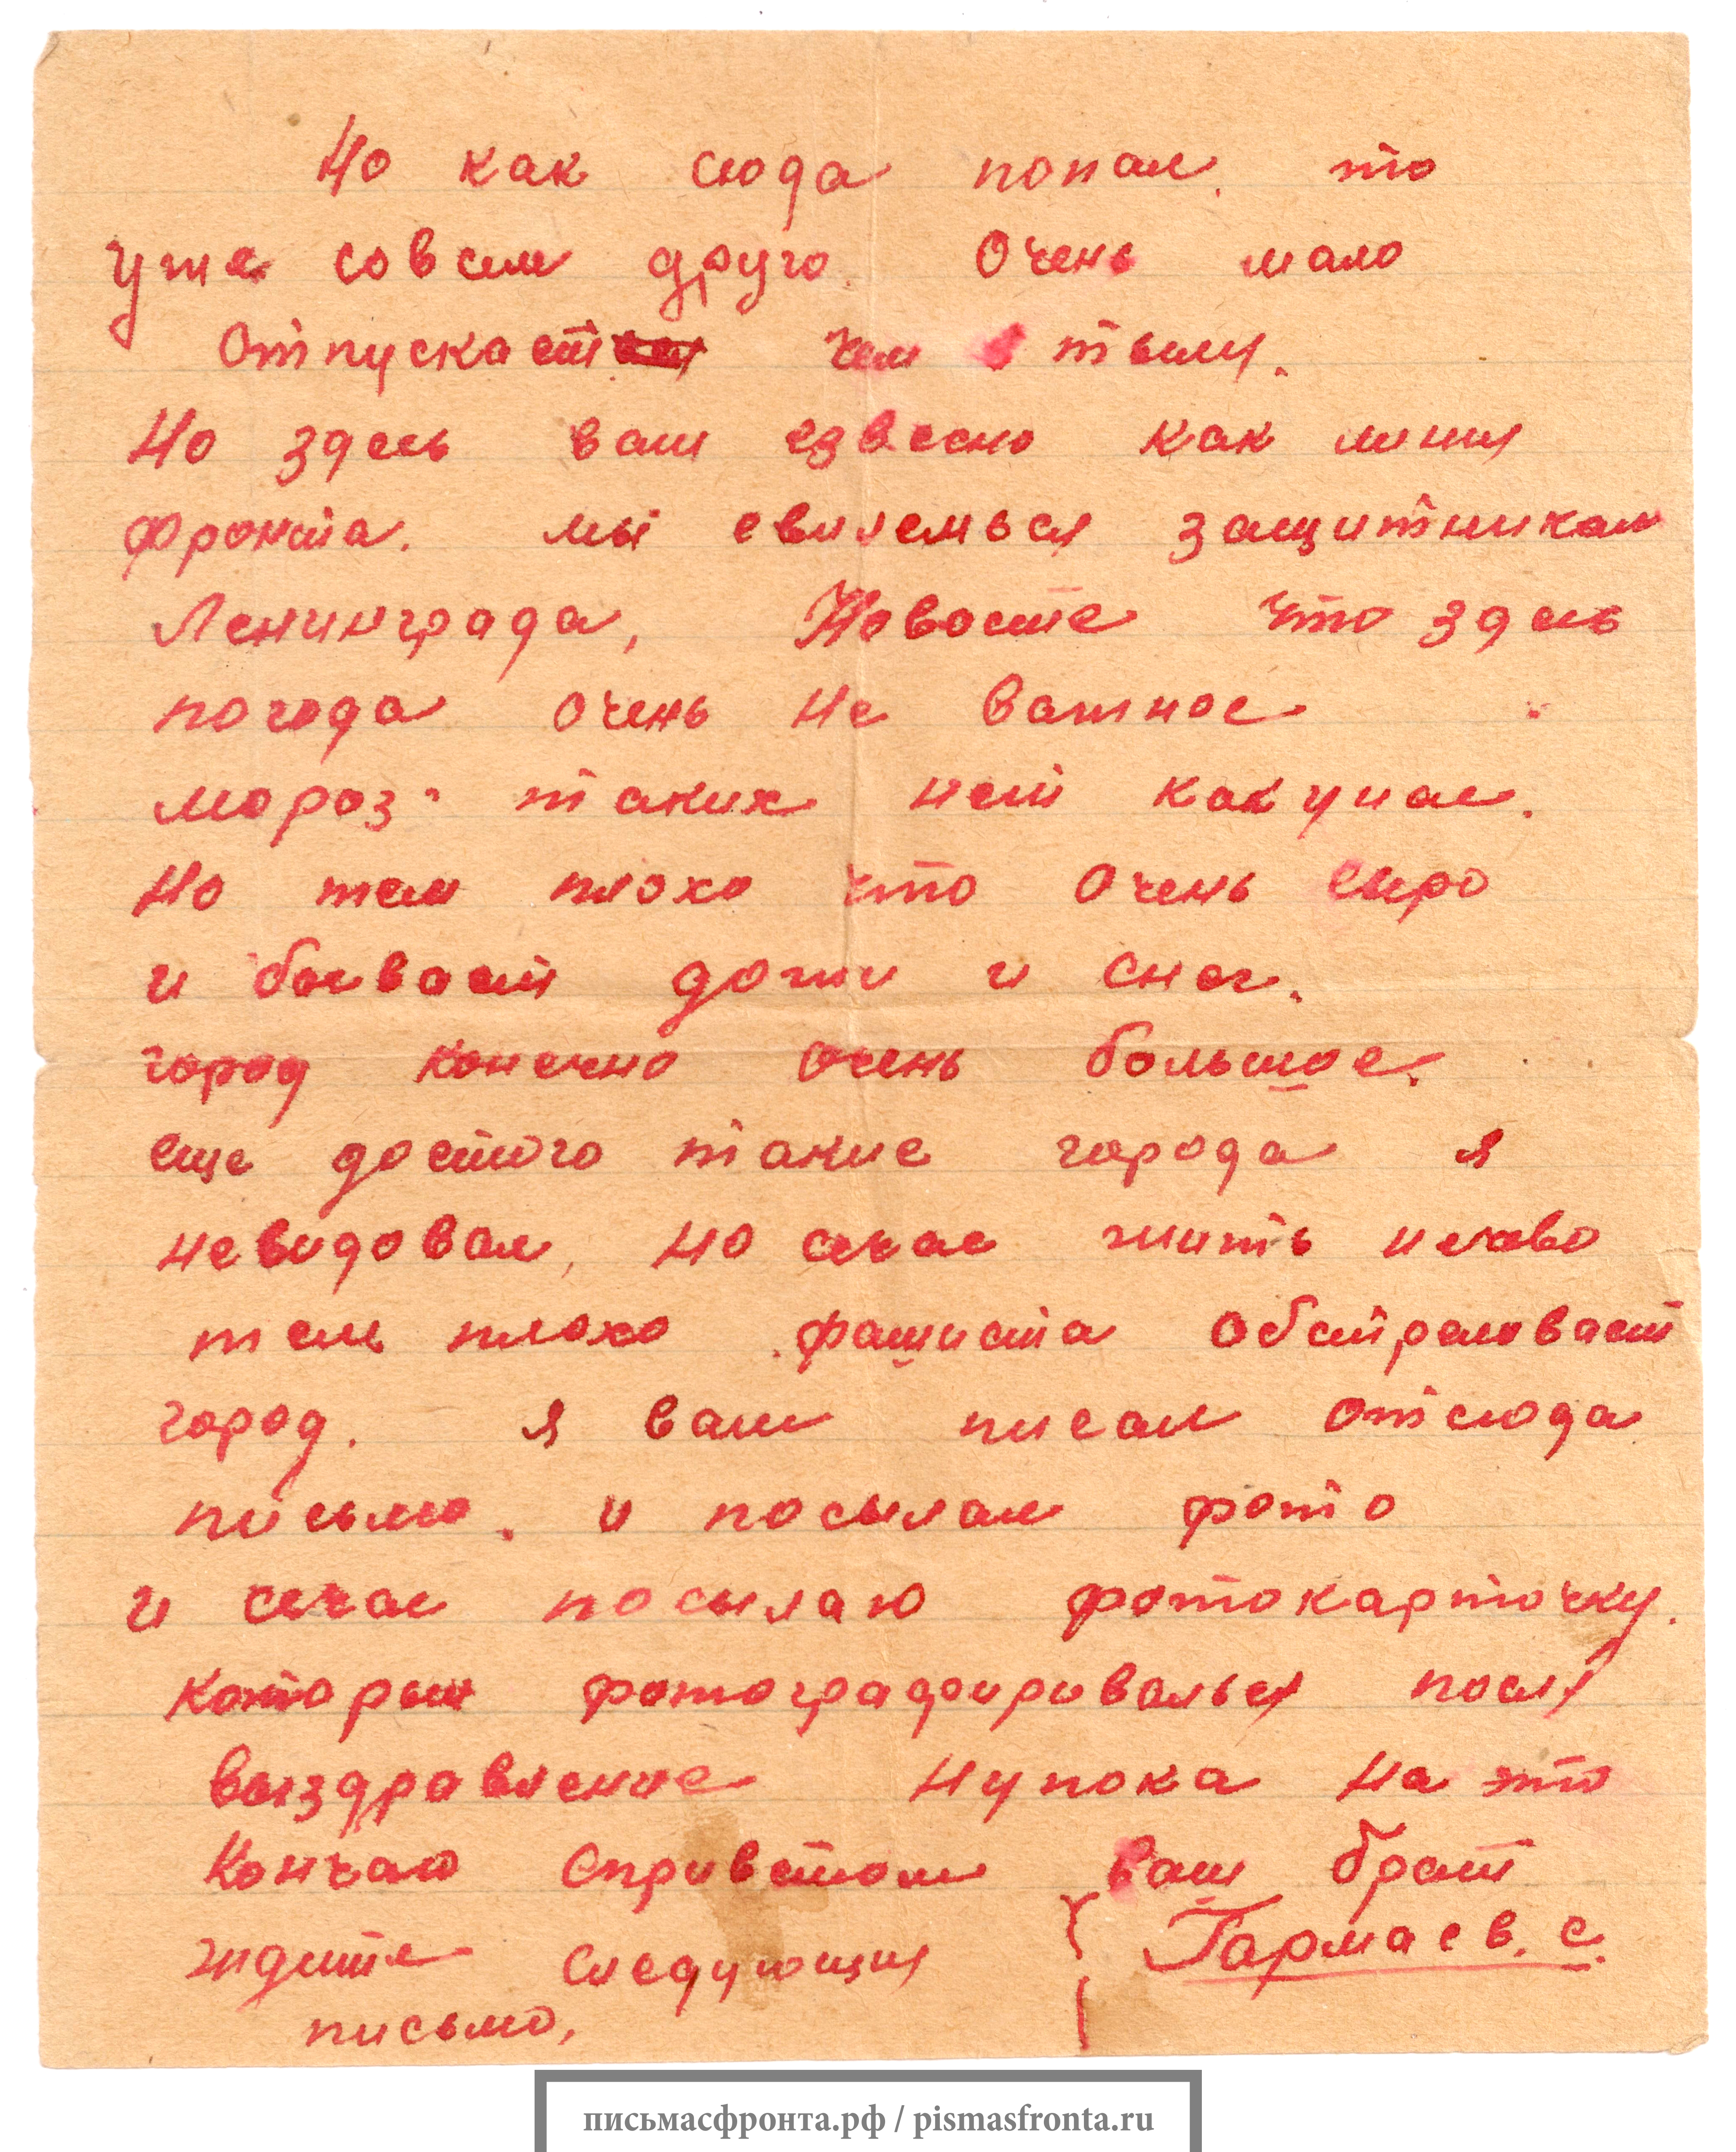 Но как сюда попал. то
уже совсем друго. Очень мало
отпускаст чем в тылу.
Но здесь вам езвесно как линия
фронта. мы евиляемься защитникам
Ленинграда, Новосте что здесь
погода очень не важное
мороз таких нет как у нас.
Но тем плохо что очень сыро
и бывает дожи и снег.
город конечно очень большое.
еще достого такие города я
невидовал, но сечас жить
тем плохо фашиста обстреловает
город. я вам писал отсюда
письмо. и посылал фото
и сечас посылаю фотокарточку.
которыи фотографировалься после
выздравление нупока на это
Кончаю сприветом ваш брат
ждите следующия Гармаев. С.
письмо,
письмасфронта.рф / pismasfronta.ru